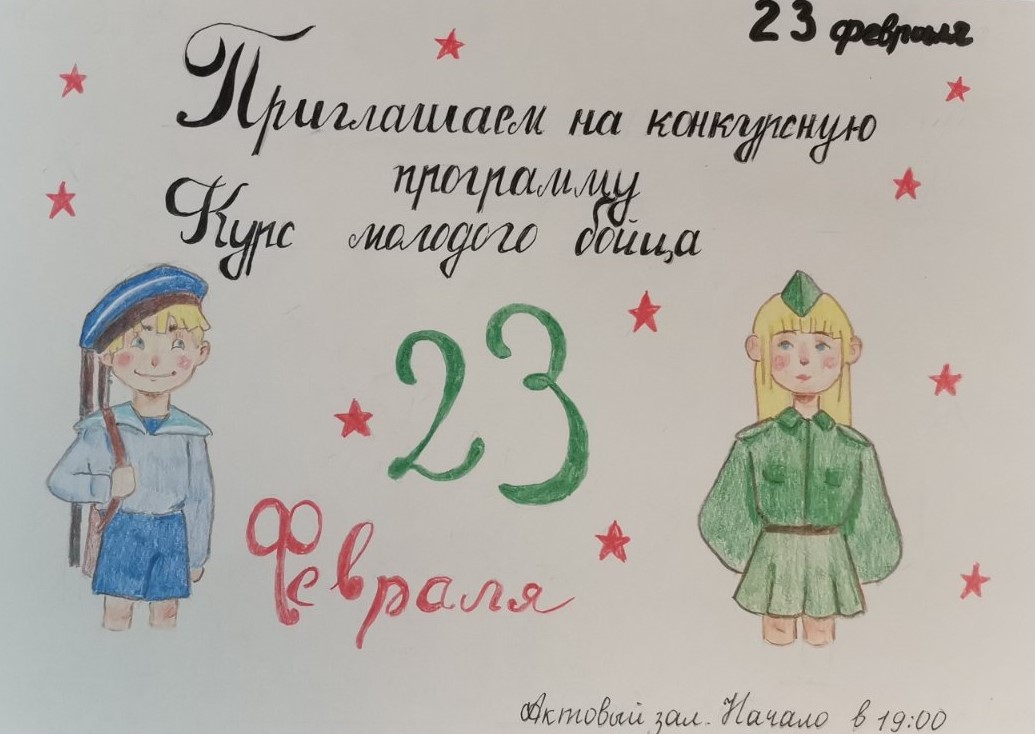 23 февраля
Приглашаем на конкурсную
программу
Курс молодого бойца
23
Февраля
Актовый зал. Начало в 19:00